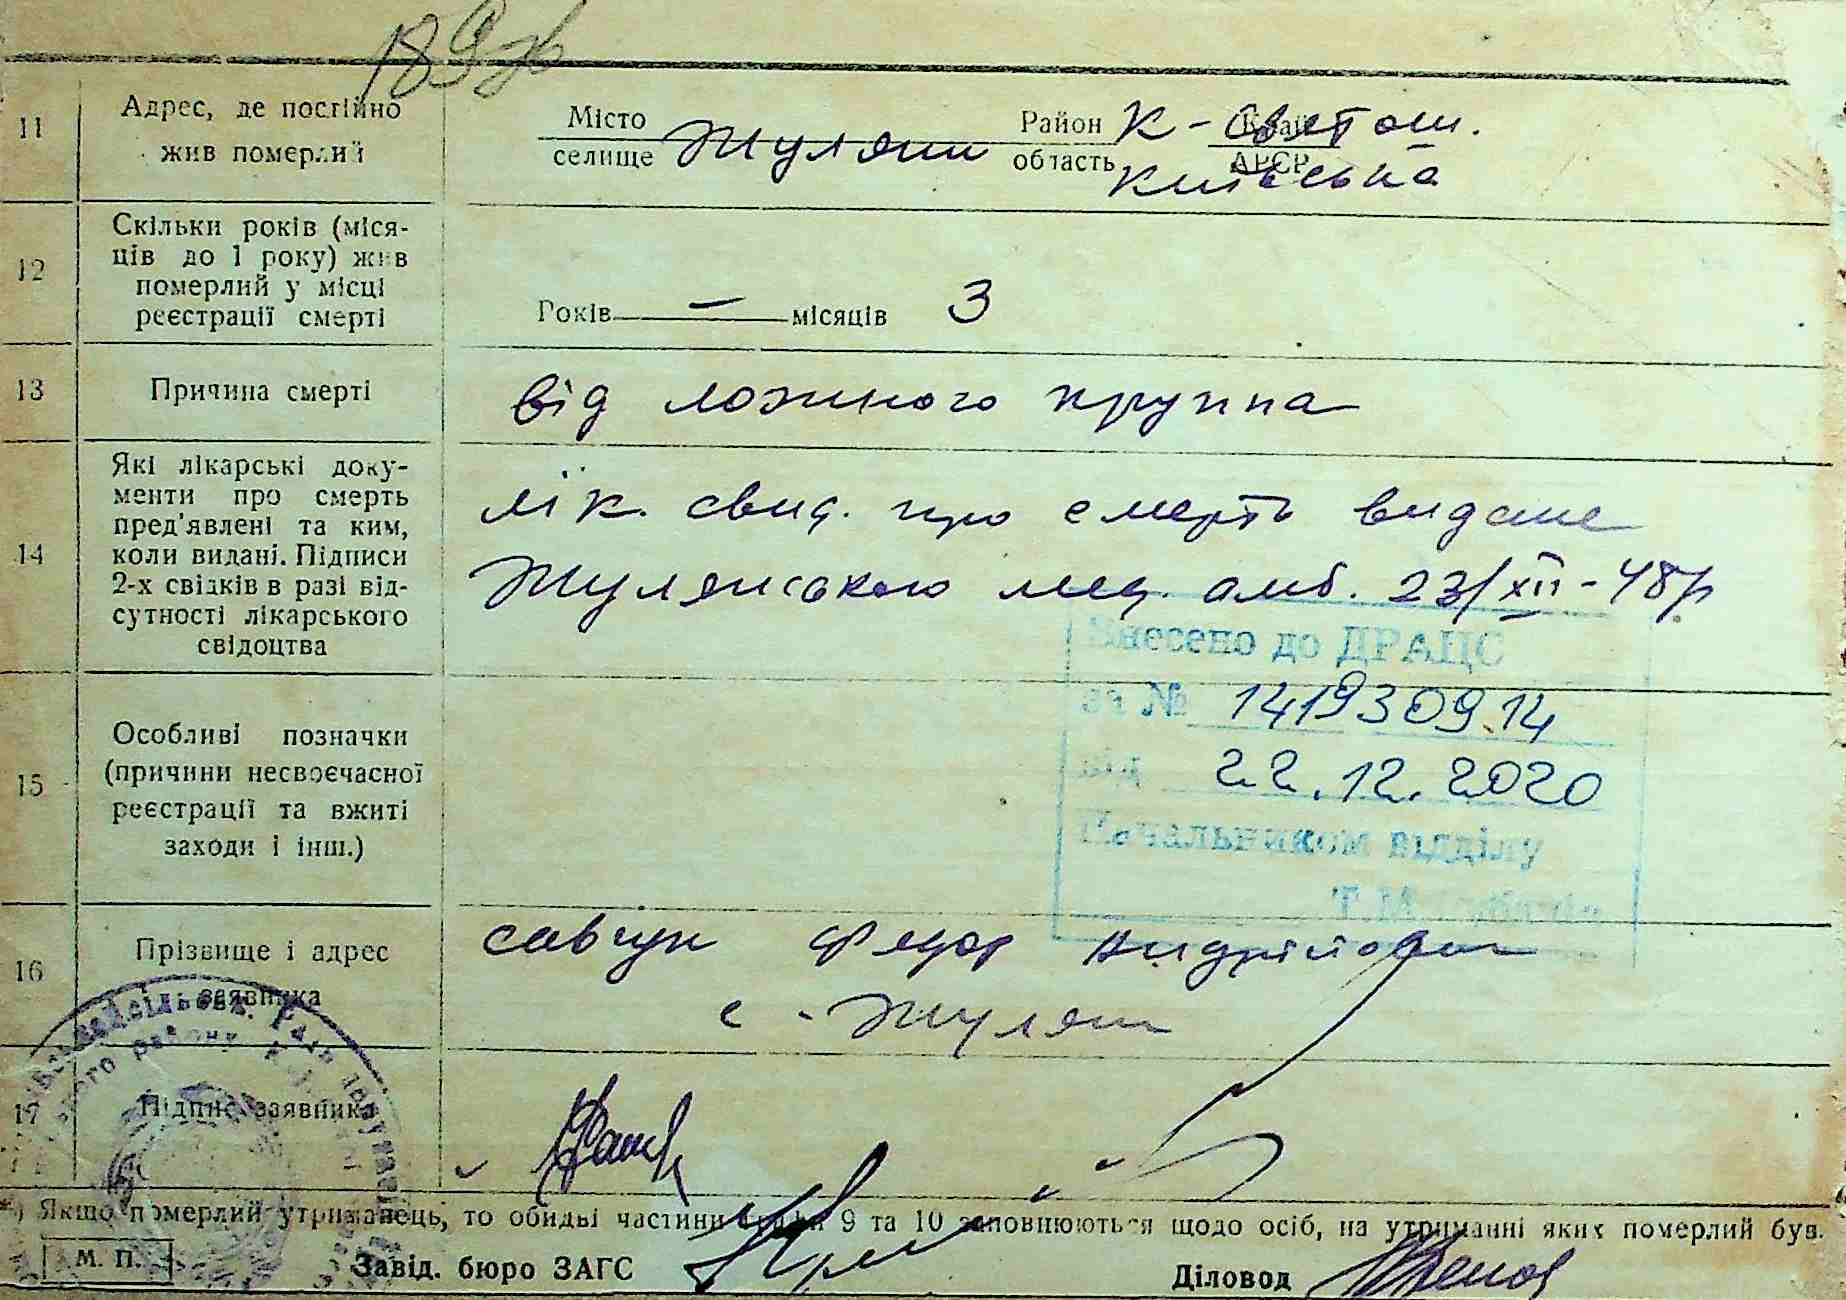 189
11
Адрес, де постійно
жив померлий
Місто
селище Жуляни
Район К-Святош.
область Київська
Край
АРСР
12
Скільки років (міся-
ців до 1 року) жив
померлий у місці
реєстрації смерті
Років — місяців 3
13
Причина смерті
від ложного круппа
14
Які лікарські доку-
менти про смерть
пред'явлені та ким,
коли видані. Підписи
2-х свідків в разі від-
сутності лікарського
свідоцтва
лік. свид. про смерть видане
Жулянською мед. амб. 23/XII-48р
Внесено до ДРАЦС
за № 1419309.14
від 22.12.2020
Начальником відділу
15
Особливі позначки
(причини несвоєчасної
реєстрації та вжиті
заходи і інш.)
16
Прізвище і адрес
заявника
Савчук Федор Андрійович
с. Жуляни
17
Підпис заявника
*) Якщо померлий утриманець, то обидві частини графи 9 та 10 заповнюються щодо осіб, на утриманні яких померлий був.
М. П.
Завід. бюро ЗАГС
Діловод